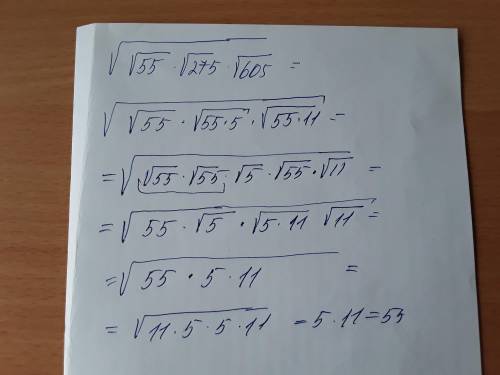 √(√55 · √275 · √605) =
√(√55 · √(55·5) · √(55·11)) =
= √(√55 · √55 · √5 · √55 · √11) =
= √(55 · √5 · √(5·11) √11) =
= √(55 · 5 · 11) =
= √(11·5·5·11) = 5·11 = 55